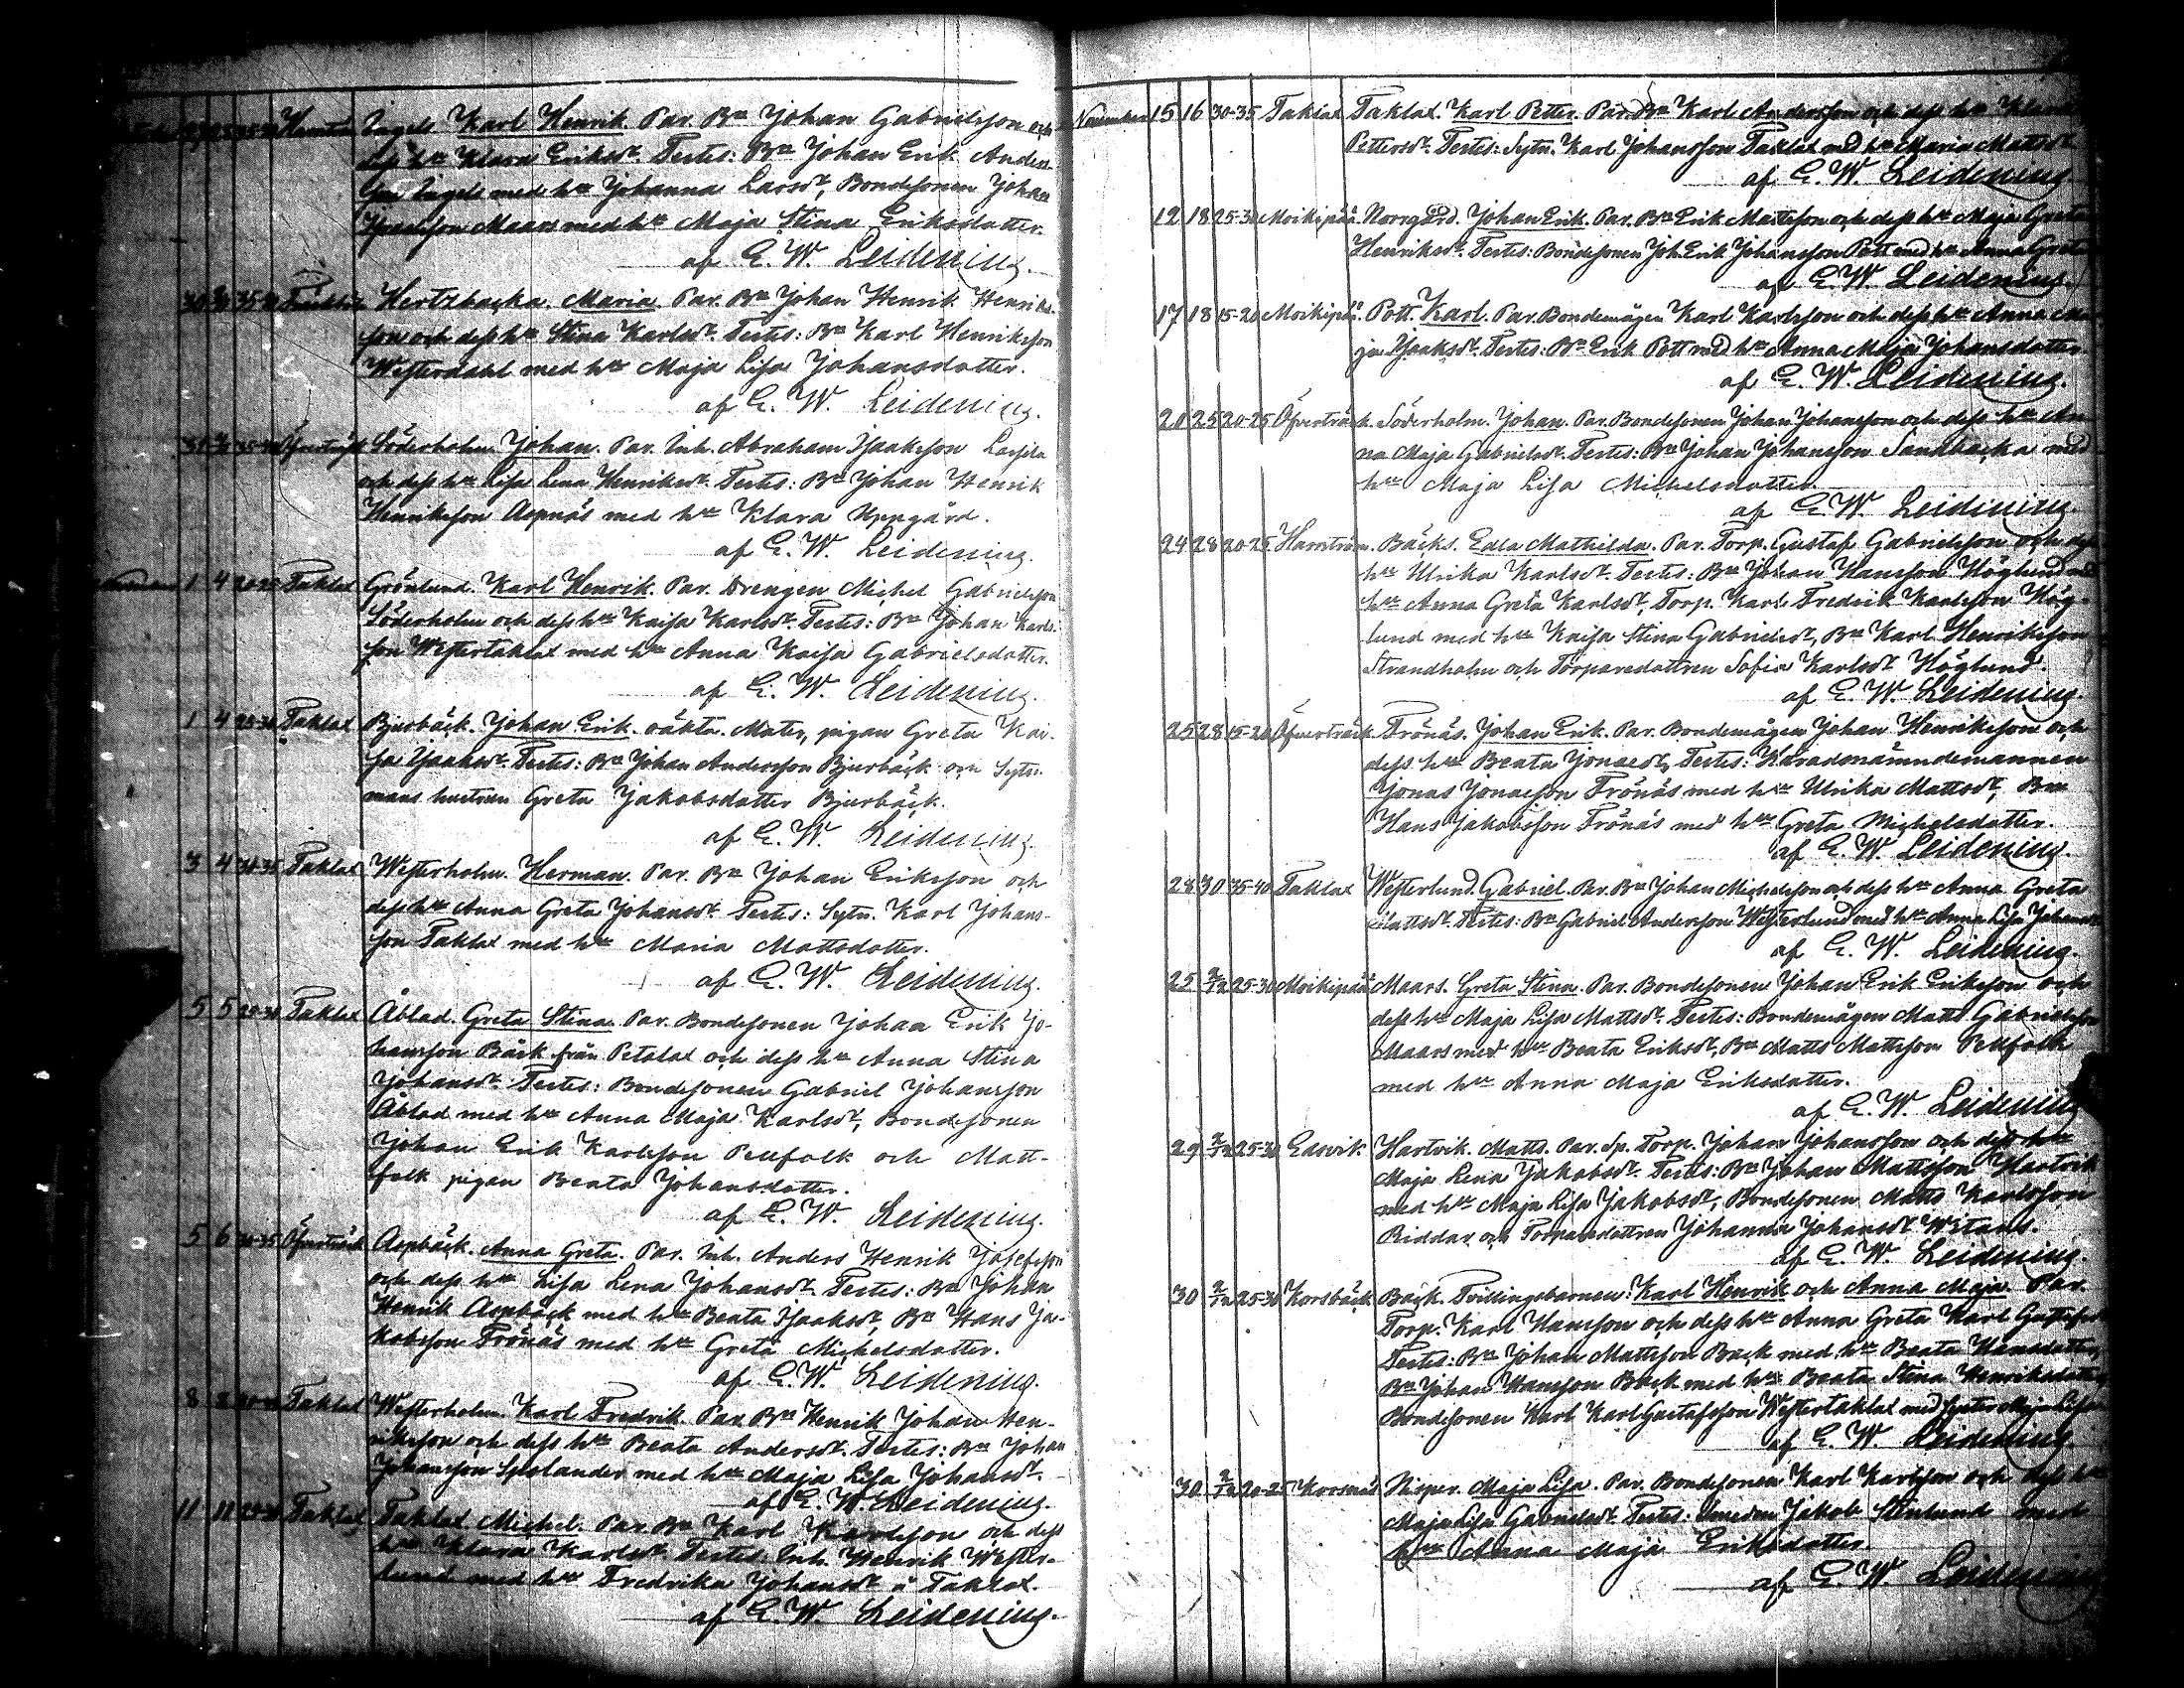 27 Harrström Ingels. Karl Henrik. Par. Bn Johan Gabrielsson och
dess hu Klara Eriksdr. Testes: Bn Johan Erik Anders-
son Ingels med hu Johanna Larsdr, Bondesonen Johan
Maars med hu Maja Stina Eriksdotter.
af E. W. Leidenius.
30 Hertzbacka. Maria. Par. Bn Johan Henrik Henriks-
son och dess hu Stina Karlsdr. Testes: Bn Karl Henriksson
Westerdahl med hu Maja Lisa Johansdotter.
af E. W. Leidenius.
31 Öfverträsk Söderholm. Johan. Par. Inh. Abraham Isaaksson
och dess hu Lisa Lena Henriksdr. Testes: Bn Johan Henrik
Henriksson Aspnäs med hu Klara Uppgård.
af E. W. Leidenius.
1 4 Taklax Grönlund. Karl Henrik. Par. Drengen Michel Gabrielsson
Söderholm och dess hu Kaisa Karlsdr. Testes: Bn Johan Karls-
son Westertaklax med hu Anna Kaisa Gabrielsdotter.
af E. W. Leidenius.
1 4 Taklax Bjurbäck. Johan Erik. oäkta. Mater, pigan Greta Kai-
sa Isaaksdr. Testes: Bn Johan Andersson Bjurbäck och Sytn.
mans hustrun Greta Jakobsdotter Bjurbäck.
af E. W. Leidenius.
3 4 30-35 Taklax Westerholm. Herman. Par. Bn Johan Eriksson och
dess hu Anna Greta Johansdr. Testes: Sytn. Karl Johans-
son Taklax med hu Maria Mattsdotter.
af E. W. Leidenius.
5 5 25-30 Taklax Åblad. Greta Stina. Par. Bondesonen Johan Erik Jo-
hansson Bäck från Petalax och dess hu Anna Stina
Johansdr. Testes: Bondesonen Gabriel Johansson
Åblad med hu Anna Maja Karlsdr, Bondesonen
Johan Erik Karlsson Pellfolk och Matt-
folk pigan Beata Johansdotter.
af E. W. Leidenius.
5 6 30-35 Öfverträsk Aspbäck. Anna Greta. Par. Inh. Anders Henrik Josefsson
och dess hu Lisa Lena Johansdr. Testes: Bn Johan
Henrik Aspbäck med hu Beata Isaaksdr, Bn Hans Ja-
kobsson Frönäs med hu Greta Michelsdotter.
af E. W. Leidenius.
8 8 Taklax Westerholm. Karl Fredrik. Par. Bn Henrik Johan Hen-
riksson och dess hu Beata Andersdr. Testes: Bn Johan
Johansson med hu Maja Lisa Johansdr.
af E. W. Leidenius.
11 11 25-30 Taklax Taklax. Michel. Par. Bn Karl Karlsson och dess
hu Klara Karlsdr. Testes: Inh. Henrik Wester-
lund med hu Fredrika Johansdr i Taklax.
af E. W. Leidenius.
November 15 16 30-35 Taklax Taklax. Karl Petter. Par. Bn Karl Andersson och dess hu Klara
Pettersdr. Testes: Sytn. Karl Johansson Taklax med hu Maria Mattsdr
af E. W. Leidenius
12 18 25-30 Moikipää Norrgård. Johan Erik. Par. Bn Erik Mattsson och dess hu Maja Greta
Henriksdr. Testes: Bondesonen Joh. Erik Johansson Pott med hu Anna Greta
af E. W. Leidenius.
17 18 15-20 Moikipää. Pott. Karl. Par. Bondemågen Karl Karlsson och dess hu Anna Ma
ja Isaaksdr. Testes: Bn Erik Pott med hu Anna Maja Johansdotter
af E. W. Leidenius.
20 25 20-25 Öfverträsk. Söderholm. Johan. Par. Bondesonen Johan Johansson och dess hu An
na Maja Gabrielsdr. Testes: Bn Johan Johansson Sandbacka med
hu Maja Lisa Michelsdotter.
af E. W. Leidenius.
24 28 20-25 Harrström. Bäcks. Edla Mathilda. Par. Torp. Gustaf Gabrielsson och dess
hu Ulrika Karlsdr. Testes: Bn Johan Hansson Höglund med
hu Anna Greta Karlsdr, Torp. Karl Fredrik Karlsson Hög-
lund med hu Kaisa Stina Gabrielsdr, Bn Karl Henriksson
Strandholm och Torparedottren Sofia Karlsdr Höglund.
af E. W. Leidenius
25 28 15-20 Öfverträsk Frönäs. Johan Erik. Par. Bondemågen Johan Henriksson och
dess hu Beata Jonasdr, Testes: Häradsnämndemannen
Jonas Jonasson Frönäs med hu Ulrika Mattsdr, Bn
Hans Jakobsson Frönäs med hu Greta Michelsdotter.
af E. W. Leidenius.
28 30 35-40 Taklax Westerlund. Gabriel. Par. Bn Johan Michelsson och dess hu Anna Greta
Mattsdr. Testes: Bn Gabriel Andersson Westerlund med hu Anna Lisa Johansdr
af E. W. Leidenius.
25 2/12 25-30 Moikipää Maars. Greta Stina. Par. Bondesonen Johan Erik Eriksson och
dess hu Maja Lisa Mattsdr. Testes: Bondemågen Matts Gabrielsson
Maars med hu Beata Eriksdr, Bn Matts Mattsson Pellfolk
med hu Anna Maja Eriksdotter.
af E. W. Leidenius
29 2/12 25-30 Edsvik Hartvik. Matts. Par. Sp. Torp. Johan Johansson och dess hu
Maja Lena Jakobsdr. Testes: Bn Johan Mattsson Hartvik
med hu Maja Lisa Jakobsdr, Bondesonen Matts Karlsson
Riddar och Torparedottren Johanna Johansdr Witans.
af E. W. Leidenius.
30 2/12 25-30 Korsbäck Bäck. Tvillingsbarnen: Karl Henrik och Anna Maja. Par.
Torp. Karl Hansson och dess hu Anna Greta Karl Gustafsdr
Testes: Bn Johan Mattsson Back med hu Beata Hansdotter,
Bn Johan Hansson Bäck med hu Beata Stina Henriksdotter
Bondesonen Karl Karl Gustafsson Westertaklax med syster Maja Lisa
af E. W. Leidenius.
30 2/12 20-25 Korsnäs Nisper. Maja Lisa. Par. Bondesonen Karl Karlsson och dess hu
Maja Lisa Gabrielsdr. Testes: Smeden Jakob Stenlund med
hu Anna Maja Eriksdotter.
af E. W. Leidenius